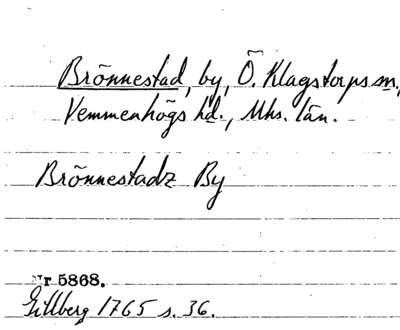 Brönnestad, by, Ö. Klagstorps sn,
Vemmenhögs hd., Mhs. län.
Brönnestadz By
Nr 5868.
Gillberg 1765 s. 36.